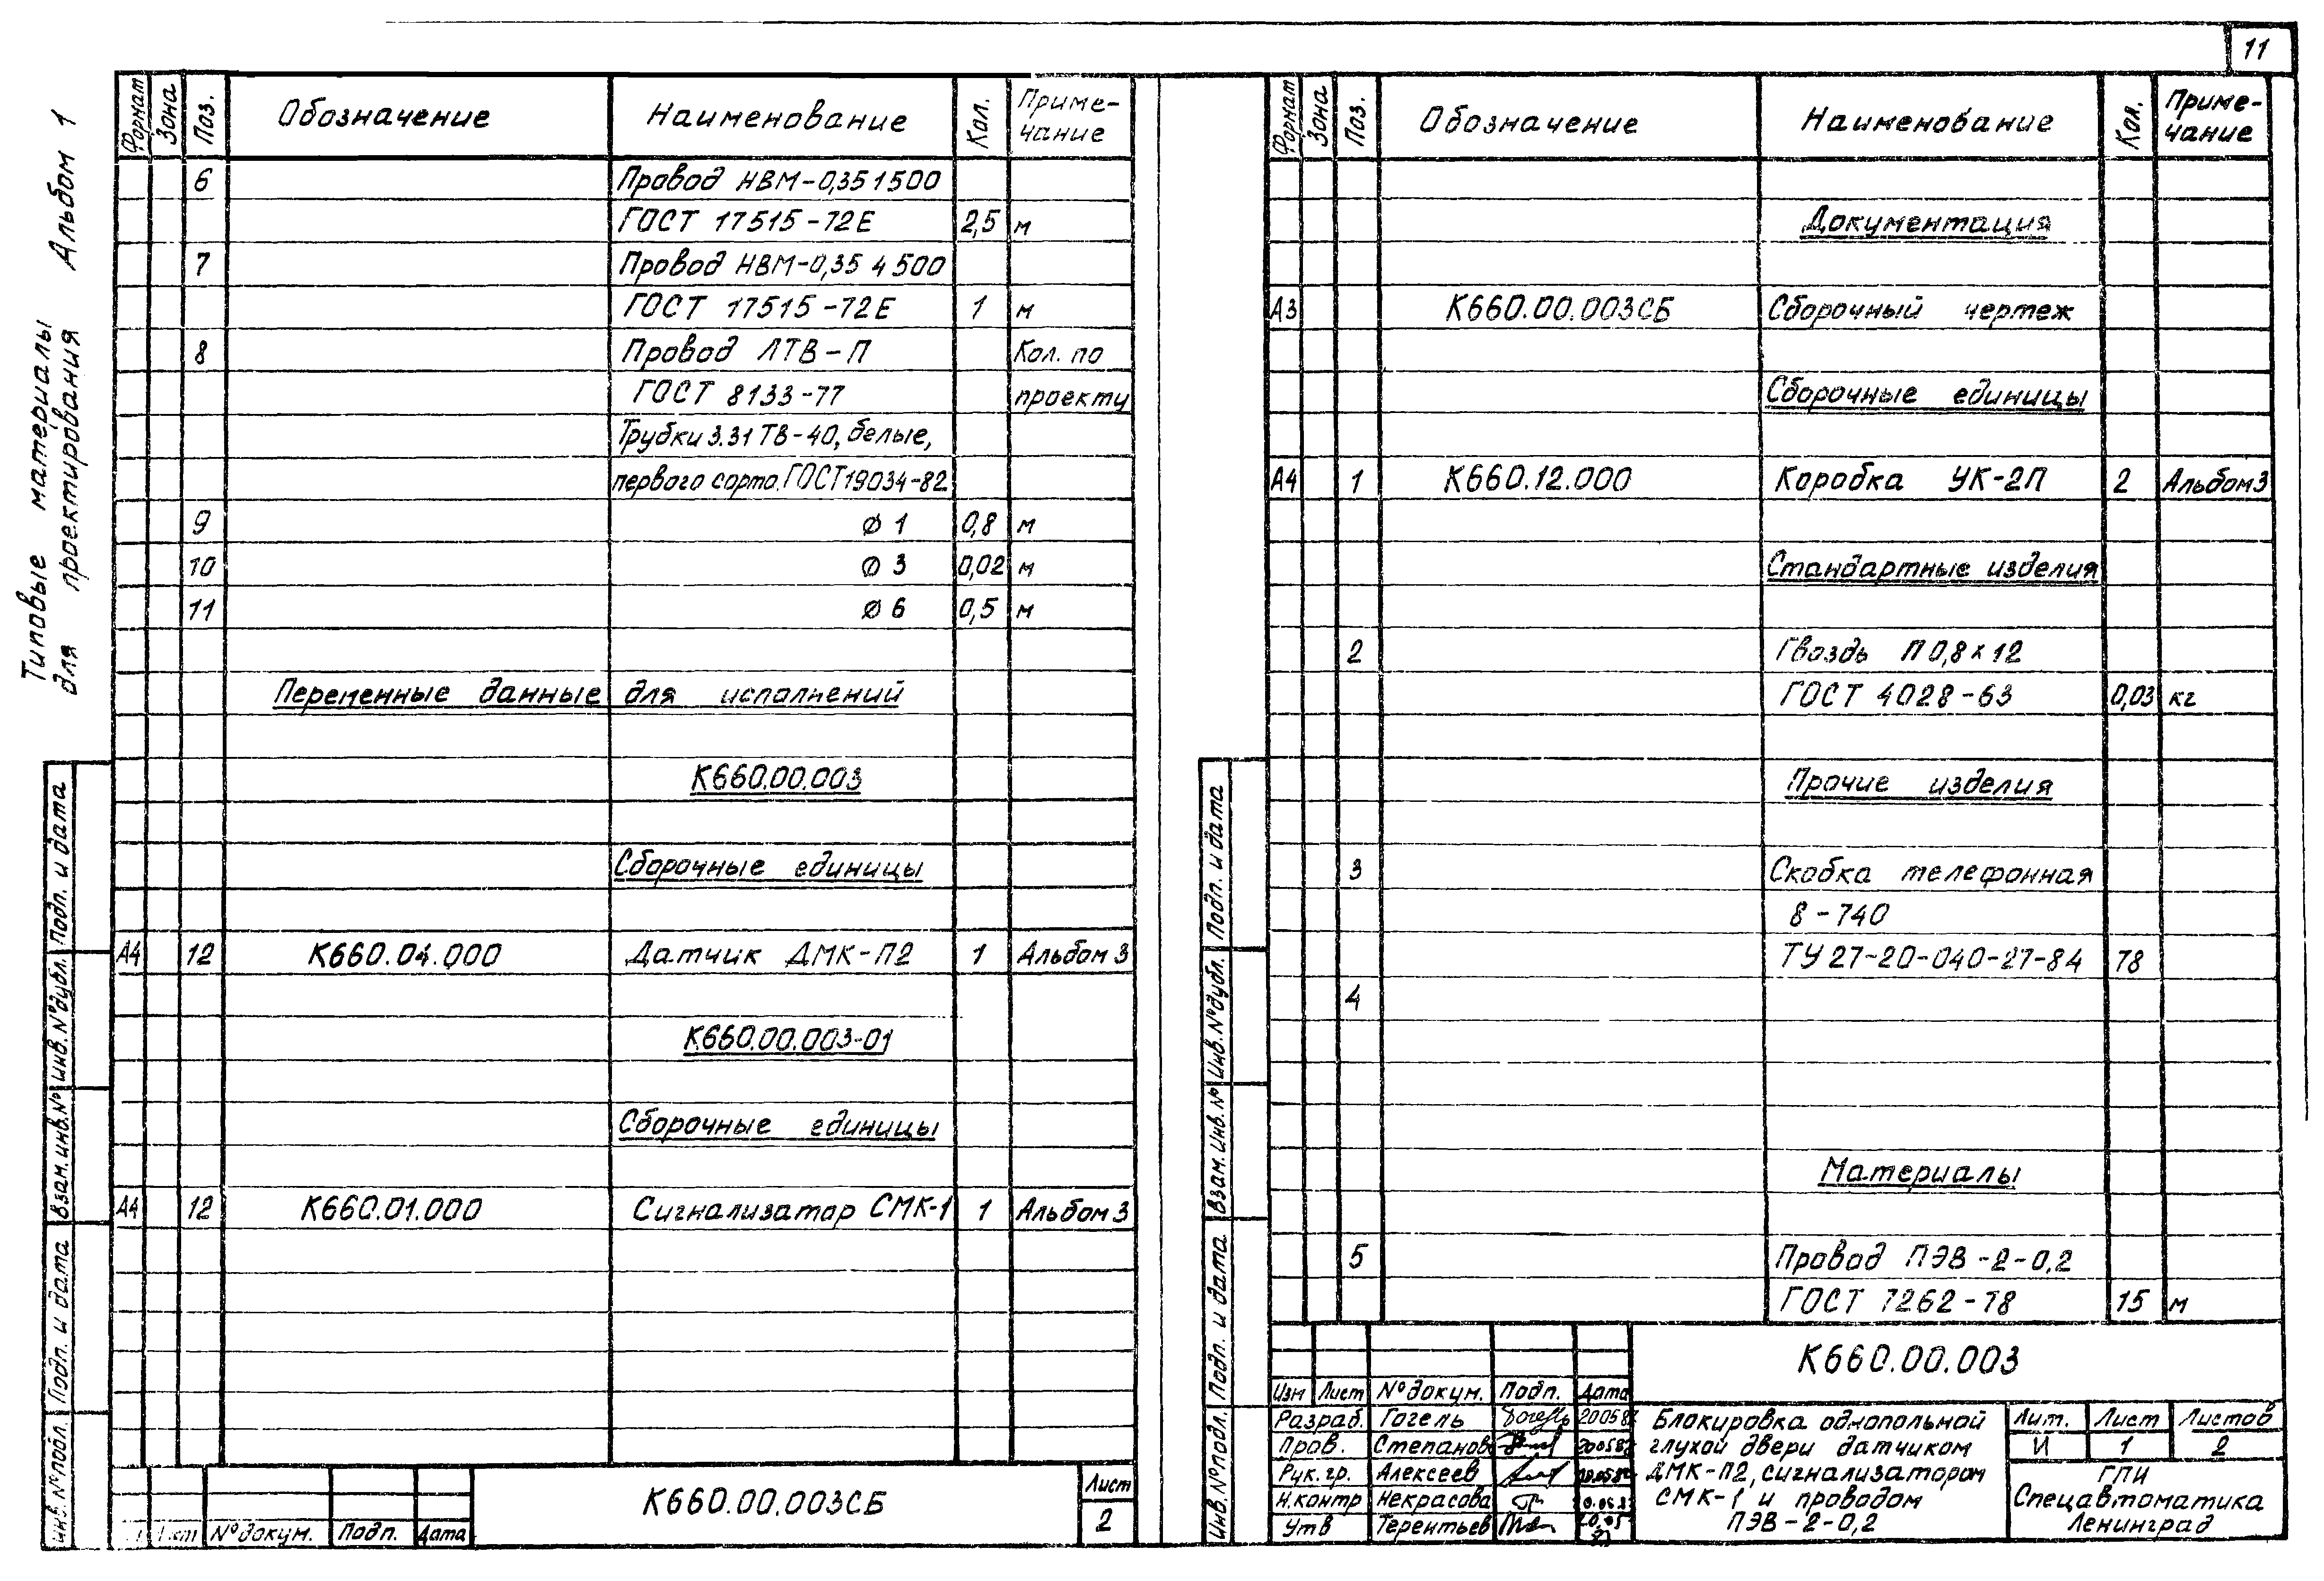 11
Типовые материалы
для проектирования Альбом 1
Формат Зона Поз. Обозначение Наименование Кол. Приме-
чание
6 Провод НВМ-0,35 1 500
ГОСТ 17515-72Е 2,5 м
7 Провод НВМ-0,35 4 500
ГОСТ 17515-72Е 1 м
8 Провод ЛТВ-П Кол. по
ГОСТ 8133-77 проекту
Трубки 3.31 ТВ-40, белые,
первого сорта. ГОСТ 19034-82
9 ∅ 1 0,8 м
10 ∅ 3 0,02 м
11 ∅ 6 0,5 м
Переменные данные для исполнений
К660.00.003
Сборочные единицы
А4 12 К660.04.000 Датчик ДМК-П2 1 Альбом 3
К660.00.003-01
Сборочные единицы
А4 12 К660.01.000 Сигнализатор СМК-1 1 Альбом 3
Инв. № подл. Подп. и дата Взам. инв. № Инв. № дубл. Подп. и дата
Лист № докум. Подп. Дата
К660.00.003СБ
Лист
2
Формат Зона Поз. Обозначение Наименование Кол. Приме-
чание
Документация
А3 К660.00.003СБ Сборочный чертеж
Сборочные единицы
А4 1 К660.12.000 Коробка УК-2П 2 Альбом 3
Стандартные изделия
2 Гвоздь П 0,8×12
ГОСТ 4028-63 0,03 кг
Прочие изделия
3 Скобка телефонная
8-740
ТУ 27-20-040-27-84 78
4
Материалы
5 Провод ПЭВ-2-0,2
ГОСТ 7262-78 15 м
Инв. № подл. Подп. и дата Взам. инв. № Инв. № дубл. Подп. и дата
К660.00.003
Изм Лист № докум. Подп. Дата
Разраб. Гоголь
Пров. Степанов
Рук. гр. Алексеев
Н. контр Некрасова
Утв Терентьев
Блокировка однопольной
глухой двери датчиком
ДМК-П2, сигнализатором
СМК-1 и проводом
ПЭВ-2-0,2
Лит. Лист Листов
И 1 2
ГПИ
Спецавтоматика
Ленинград